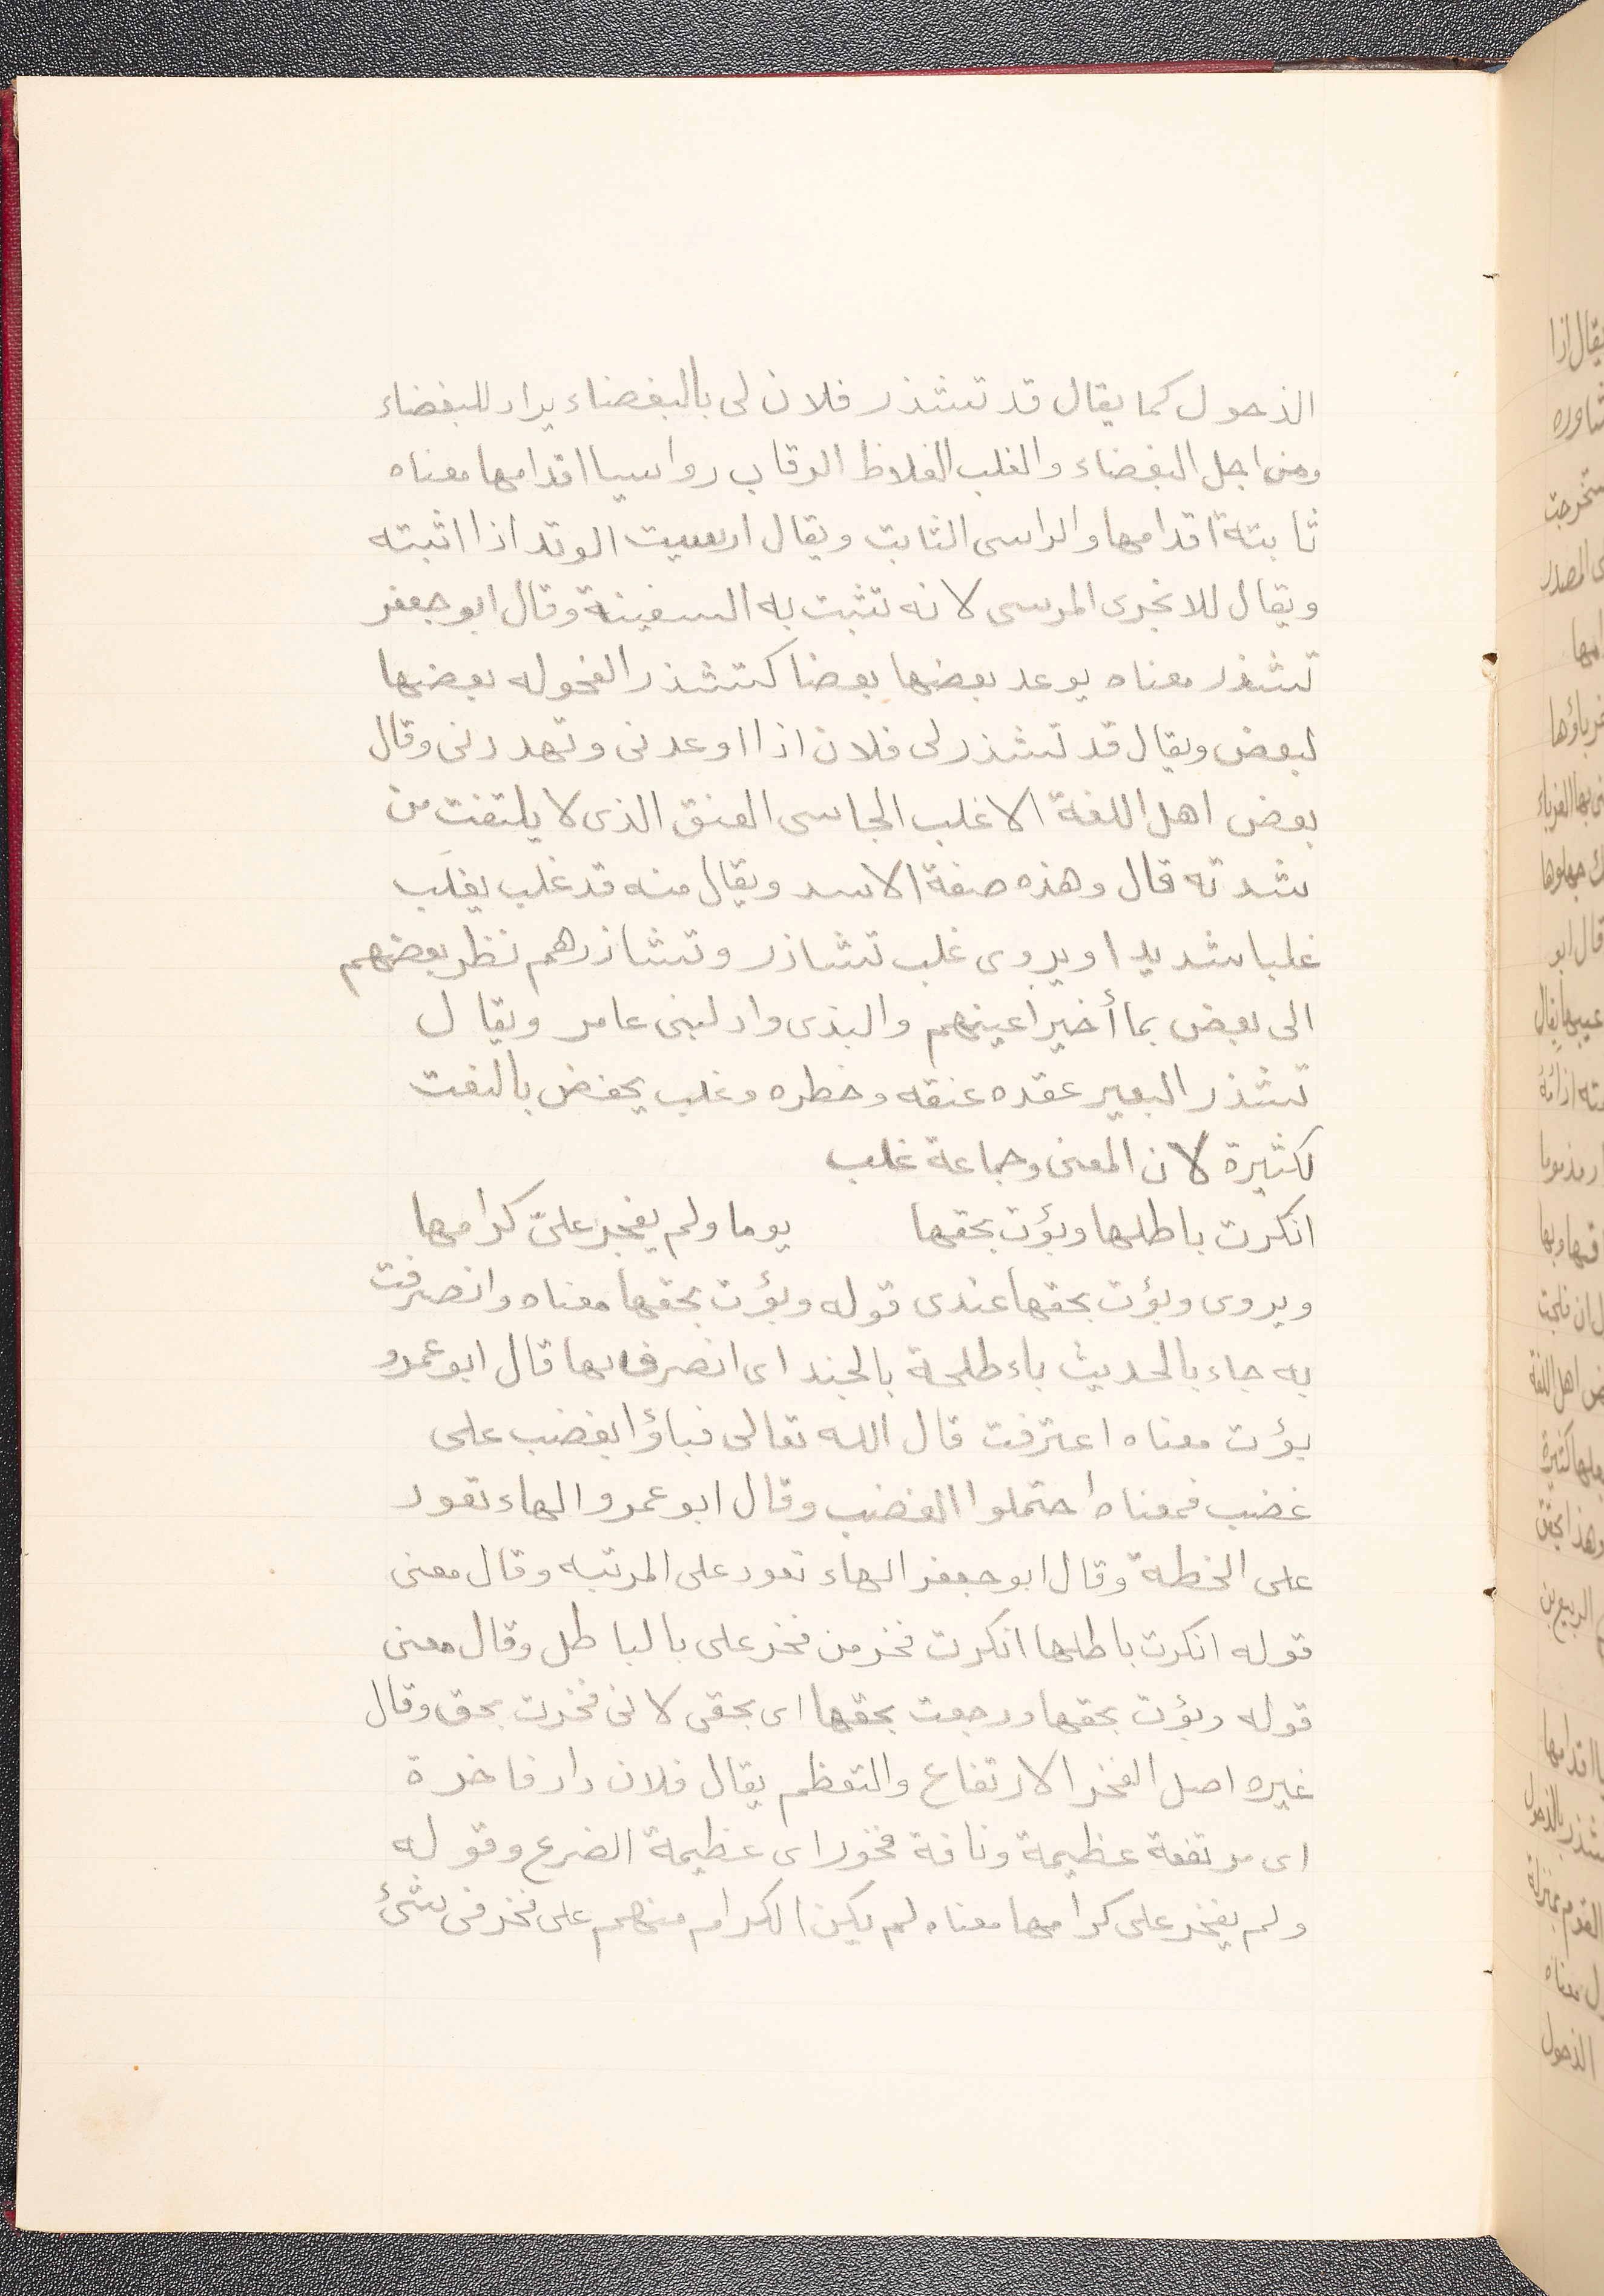 الذحول كما يقال قد تشذر فلان لى بالبغضاء يراد للبغضاء
ومن اجل البغضاء والغلب الغلاظ الرقاب رواسيا اقدامها معناه
ثابتة اقدامها والراسى الثابت ويقال ارسيت الوتد اذا اثبته
ويقال للانجرى المرسى لانه تثبت به السفينة وقال ابو جعفر
تشذر معناه يوعد بعضها بعضا كتشذر الفحوله بعضها
لبعض ويقال قد تشذر لى فلان اذا اوعدنى وتهددنى وقال
بعض اهل اللغة الاغلب الجاسى العنق الذى لا يلتفت من
شدته قال وهذه صفة الاسد ويقال منه قد غلب يغلَب
غلبا شديدا ويروى غلب تشاذر وتشاذرهم نظر بعضهم
الى بعض بما أخير اعينهم والبذى واد لبنى عامر ويقال
تشذر البعير عقده عنقه وخطره وغلب يخفض بالنعت
لكثيرة لان المعنى وجماعة غلب
انكرت باطلها وبؤت بحقها يوما ولم يفخر علىّ كرامها
ويروى وبؤت بحقها عندى قوله وبؤت بحقها معناه وانصرفت
به جاء بالحديث باء طلحة بالجند اى انصرف بها قال ابو عمرو
بؤت معناه اعترفت قال الله تعالى فباؤا بغضب على
غضب فمعناه احتملوا الغضب وقال ابو عمرو الهاء تعود
على الخطة وقال ابو جعفر الهاء تعود على المرتبه وقال معنى
قوله انكرت باطلها انكرت فخر من فخر على بالباطل وقال معنى
قوله وبؤت بحقها ورجعت بحقها اى بحقى لانى فخرت بحق وقال
غيره اصل الفخر الارتفاع والتعظم يقال فلان دار فاخرة
اى مرتفعة عظيمة وناقة فخور اى عظيمة الضرع وقوله
ولم يفخر على كرامها معناه لم يكن الكرام منهم على فخر فى شئ